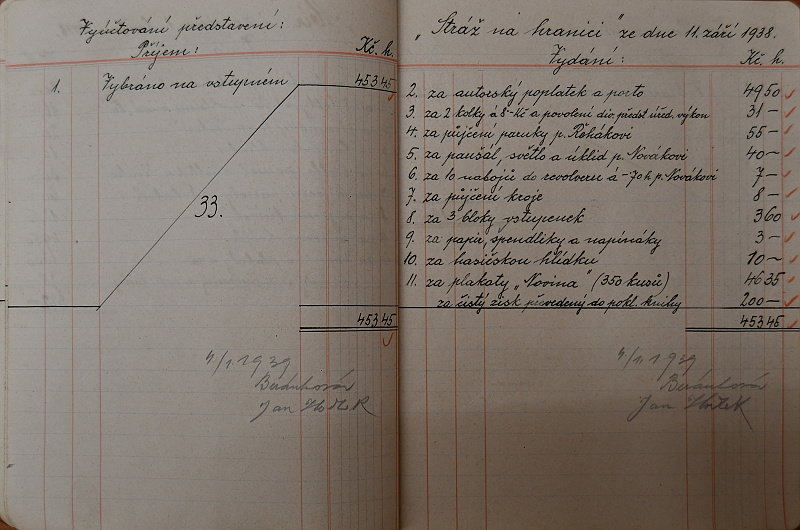 Vyúčtování představení:
Příjem: Kč. h.
1. Vybráno na vstupném 453 45
33.
453 45
4/1. 1939
Jan
"Stráž na hranici" ze dne 11. září 1938.
Vydání: Kč. h.
2. za autorský poplatek a porto 49 50
3. za 2 kolky á 8-Kč a povolení div. předst. úřed. výkon 31 -
4. za půjčení paruky p. Řehákovi 55 -
5. za paušál, světlo a úklid p. Novákovi 40 -
6. za 10 nabojů do revolveru á -70 h p. Novákovi 7 -
7. za půjčení kroje 8 -
8. za 3 bloky vstupenek 3 60
9. za papír, spendlíky a napínáky 3 -
10. za hasičskou hlídku 10 -
11. za plakaty "Novina" (350 kusů) 46 35
za čistý zisk převedený do pokl. knihy 200 -
453 45
4/1. 1939
Jan